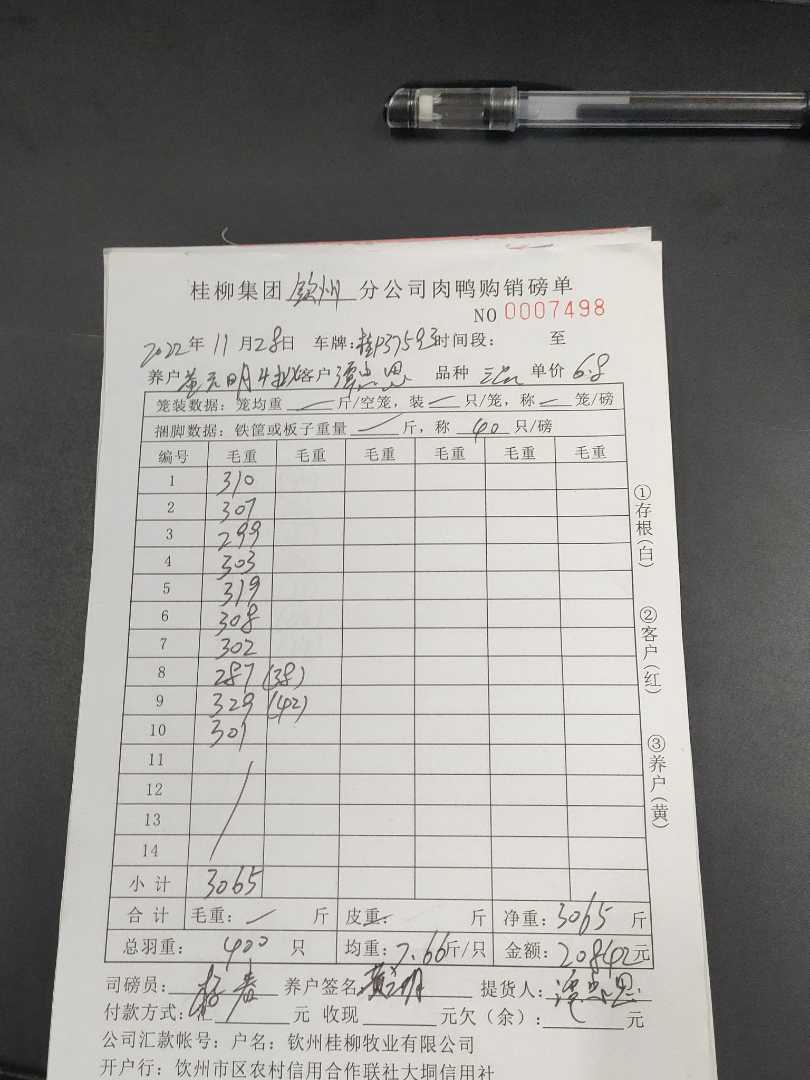 桂柳集团 钦州 分公司肉鸭购销磅单
NO 0007498
2022年 11月28日 车牌:桂P37593时间段: 至
养户 客户 品种 单价 6.8
笼装数据:笼均重 斤/空笼,装 只/笼,称 笼/磅
捆脚数据:铁筐或板子重量 斤,称 40 只/磅
编号 毛重 毛重 毛重 毛重 毛重 毛重
1 310
2 307
3 299
4 303
5 319
6 308
7 302
8 287 (38)
9 329 (42)
10 301
11
12
13
14
小计 3065
合计 毛重: 斤 皮重: 斤 净重:3065 斤
总羽重: 400 只 均重:7.66斤/只 金额:20842元
司磅员: 养户签名 提货人:
付款方式: 元 收现 元欠(余): 元
公司汇款帐号:户名:钦州桂柳牧业有限公司
开户行:钦州市区农村信用合作联社大垌信用社
①存根(白)
②客户(红)
③养户(黄)